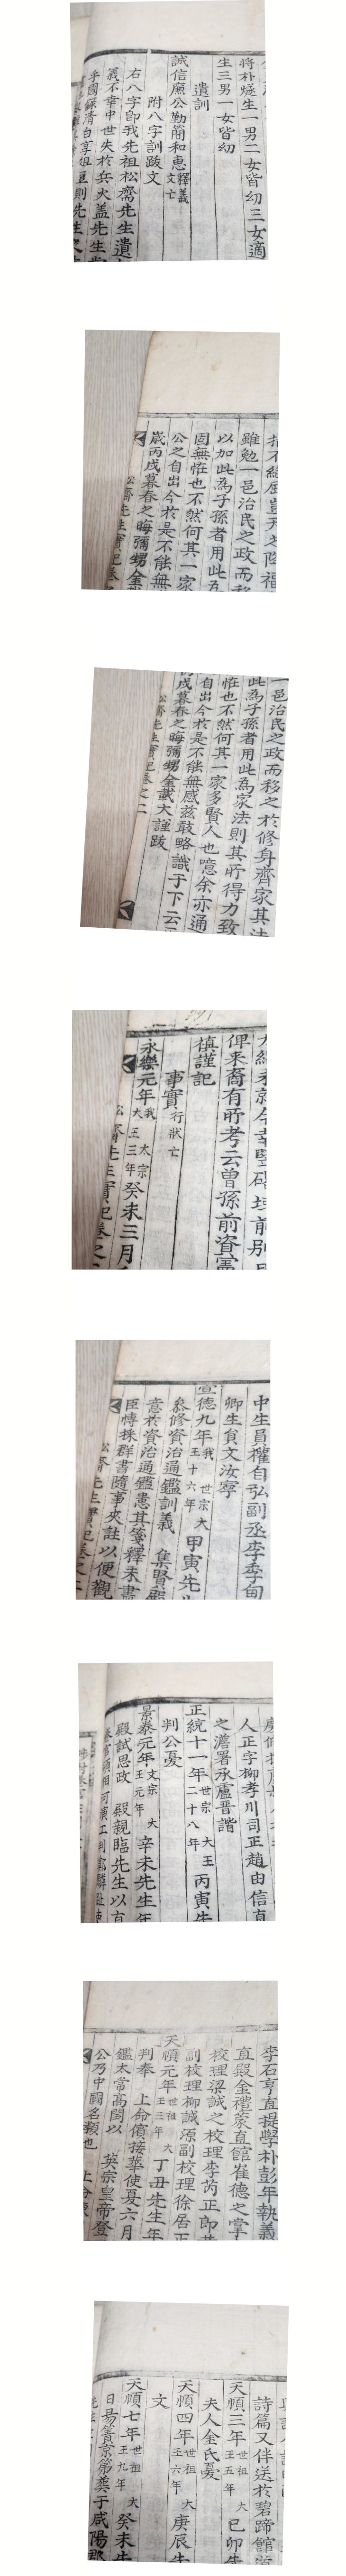 將朴燧生一男二女皆幼三女適
生三男一女皆幼
遺訓
誠信廉公勤簡和惠釋義文亡
附八字訓跋文
右八字卽我先祖松齋先生遺
義不幸中世失於兵火蓋先生
乎國錄淸白享俎豆則先生之
雖勉一邑治民之政而移
以加此爲子孫者用此爲
固無怪也不然何其一家
公之自出今於是不能無
歲丙戌暮春之晦彌甥金
松齋先生實記卷
一邑治民之政而移之於修身齊家其法
此爲子孫者用此爲家法則其所得力致
怪也不然何其一家多賢人也噫余亦通
自出今於是不能無感玆敢略識于下云
丙戌暮春之晦彌甥金載大謹跋
松齋先生實記卷之二
俾來裔有所考云曾孫前資憲
槙謹記
事實行狀亡
永樂元年我太宗大王三年癸未三月
松齋先生實記卷之
中生員權自弘副丞李季甸
卿生負文汝寧
宣德九年我世宗大王十六年甲寅先
叅修資治通鑑訓義 集賢殿
意於資治通鑑患其箋釋未盡
臣慱採群書隨事夾註以便觀
松齋先生實記卷之
人正字柳孝川司正趙由信直
之澹署承盧晋諧
正統十一年世宗大王二十八年丙寅先
判公憂
景泰元年文宗大王元年辛未先生年
殿試思政 殿親臨先生以直
李石亨直提學朴彭年執義
直殿金禮蒙直館崔德之掌
校理梁誠之校理李芮正郎
副校理柳誠源副校理徐居正
天順元年世祖大王三年丁丑先生年
判奉 上命儐接華使夏六月
鑑太常高閏以 英宗皇帝登
公乃中國名類也 上
詩篇又伴送於碧蹄館
天順三年世祖大王五年己卯先
夫人金氏憂
天順四年世祖大王六年庚辰先
文
天順七年世祖大王九年癸未先
日易簀京第葬于咸陽郡